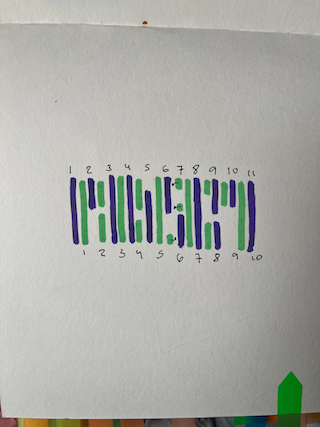 1 2 3 4 5 6 7 8 9 10 11
1 2 3 4 5 6 7 8 9 10